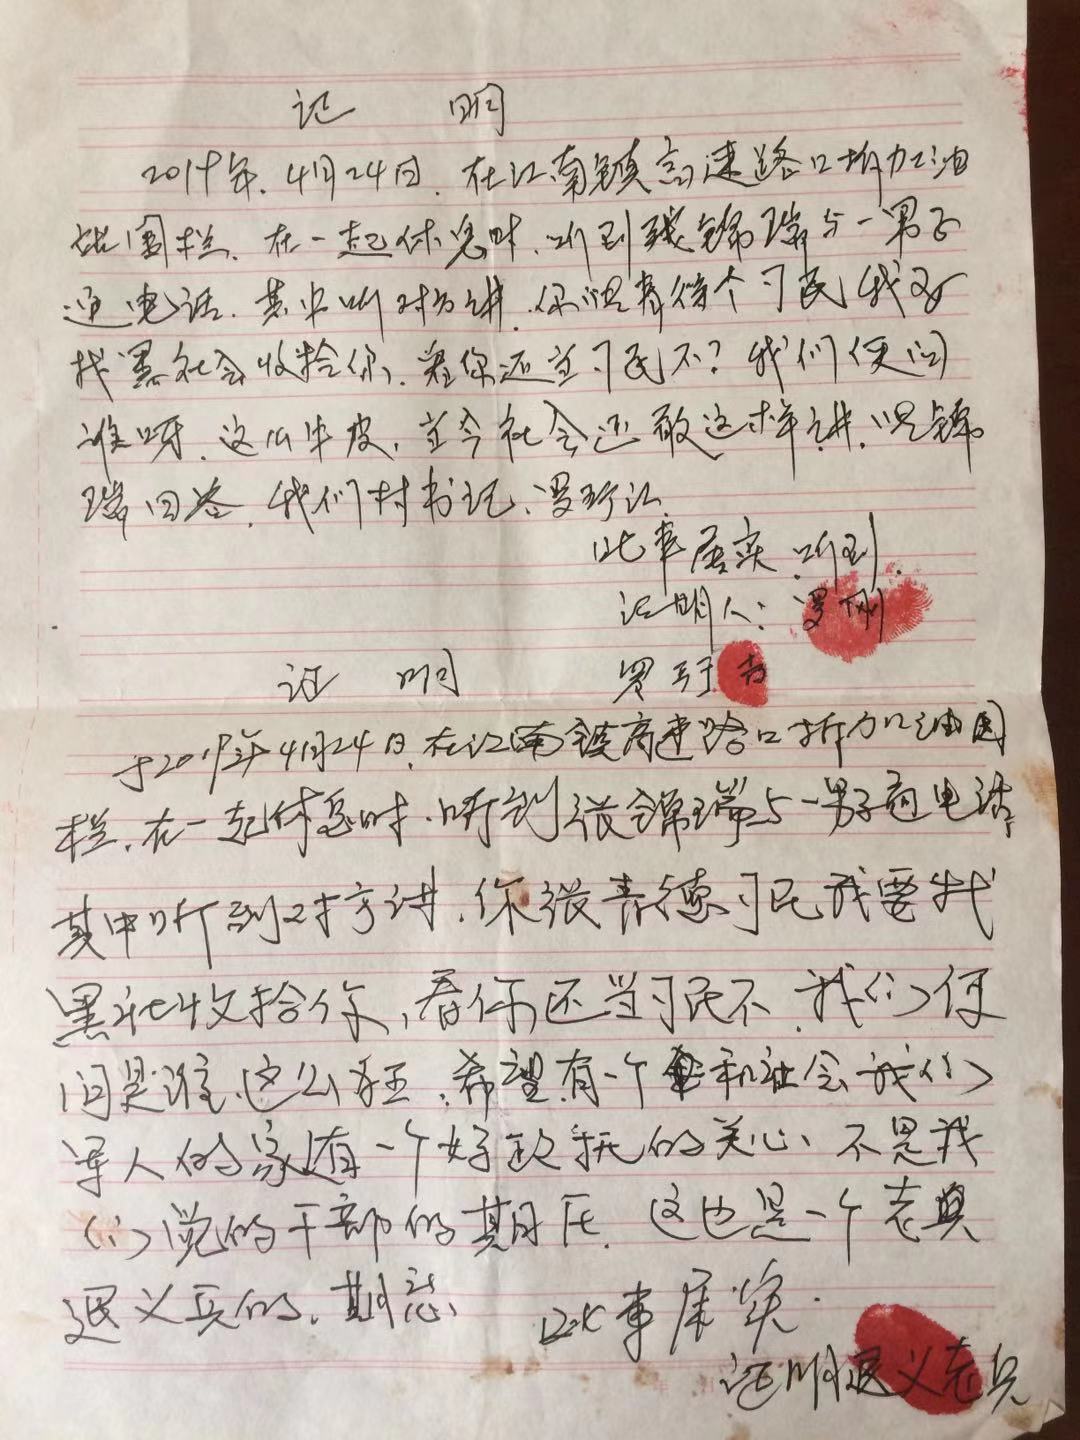 证 明
2019年.4月24日.在江南镇高速路口拆加油
站围栏.在一起休息时.听到张锦瑞与一男子
通电话.其中听对方讲.你 青 个刁民我要
找黑社会收拾你.看你还当刁民不?我们便问
谁呀.这么牛皮,当今社会还敢这样讲.锦
瑞回答.我们村书记.罗
此事属实.听到.
证明人:罗刚
证 明 罗
于2019年4月24日.在江南镇高速路口拆加油围
栏.在一起休息时.听到张锦瑞与一男子通电话,
其中听到对方讲.你张青德刁民我要找
黑社收拾你,看你还当刁民不.我们便
问是谁.这么狂.希望有一个和社会我们
军人的家有一个好的关心、不是我
们党的干部的期压.这也是一个老兵
退义兵的.期
此事属实.
证明退义老兵